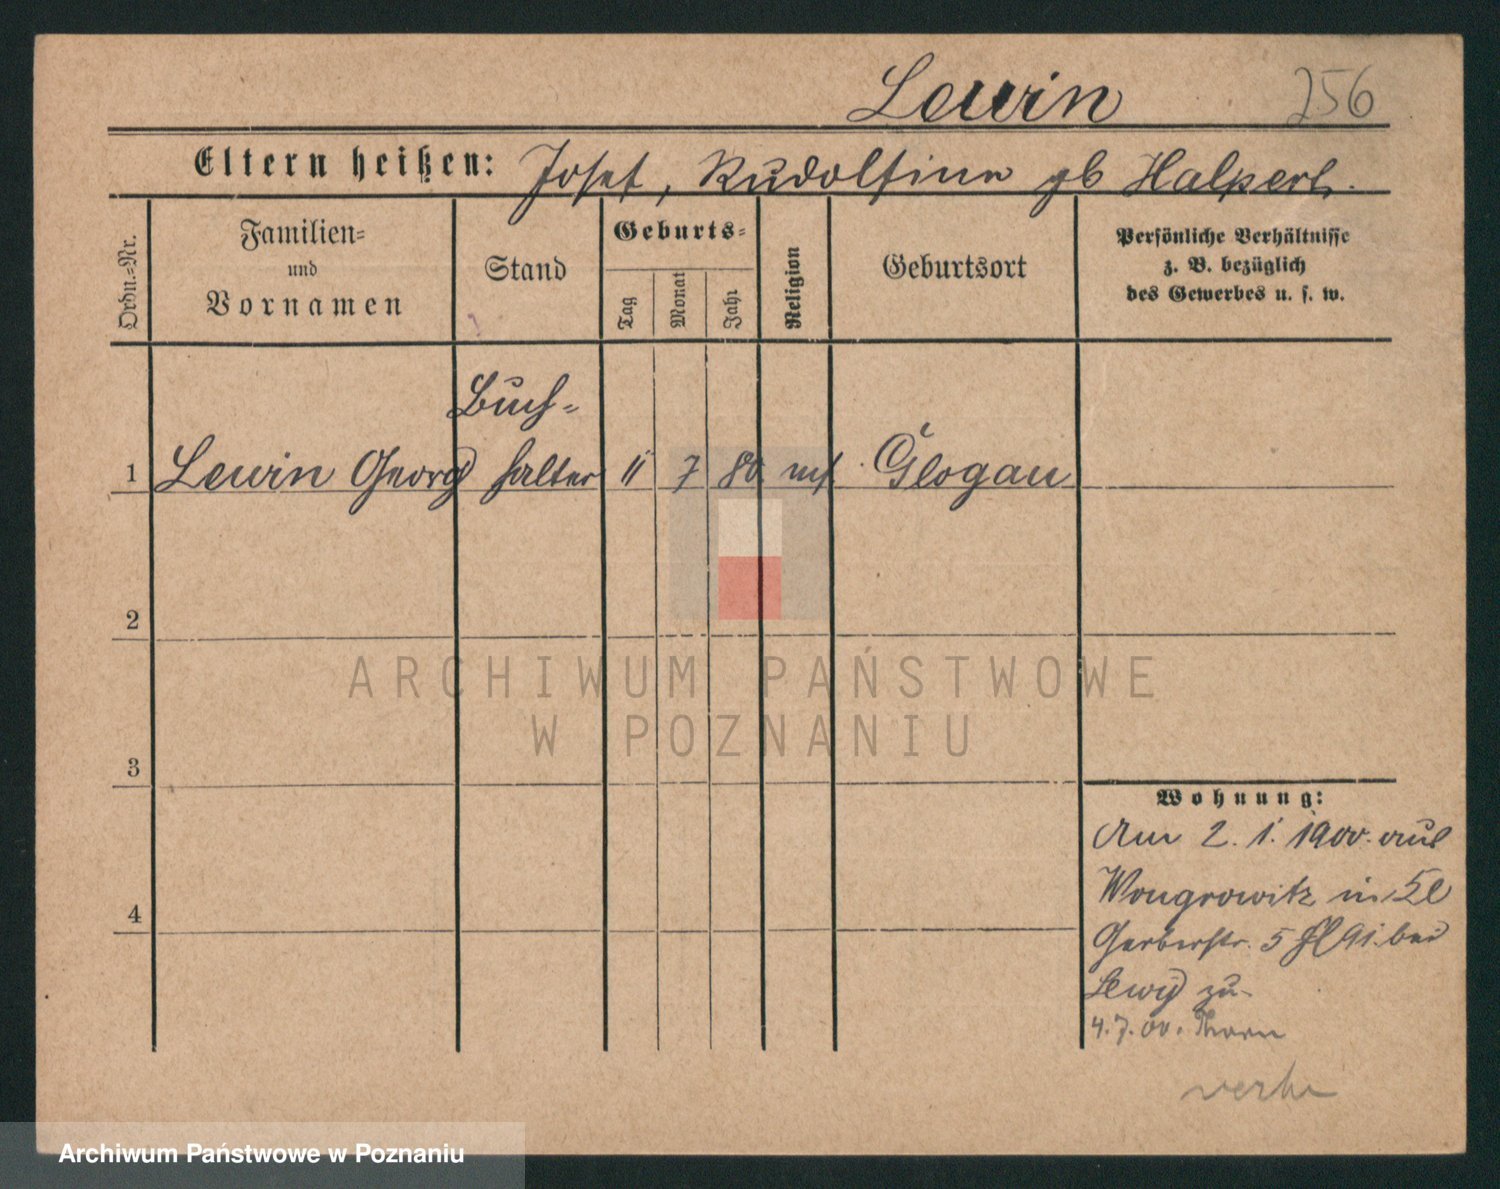 Lewin 256
Eltern heißen: Josef, Rudolfine gb Halpert.
Ordn.=Nr.
Familien=
und
Vornamen
Stand
Geburts=
Tag
Monat
Jahr
Religion
Geburtsort
Persönliche Verhältnisse
z. B. bezüglich
des Gewerbes u. s. w.
Buch=
1 Lewin Georg halter 11 7 80 mos. Glogau
2
3
4
Wohnung:
Am 2. 1. 1900. aus
Wongrowitz in
Gerberstr. 5 bei
Lewy zu
4. 7. 00. Thorn
ARCHIWUM PAŃSTWOWE
W POZNANIU
Archiwum Państwowe w Poznaniu